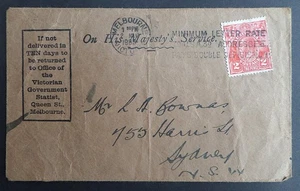 If not
delivered in
TEN days to
be returned
to Office of
the
Victorian
Government
Statist,
Queen St.,
Melbourne.
MELBOURNE
On His Majesty's Service.
MINIMUM LETTER RATE
2
Mr
753 Harris St
Sydney
N.S.W